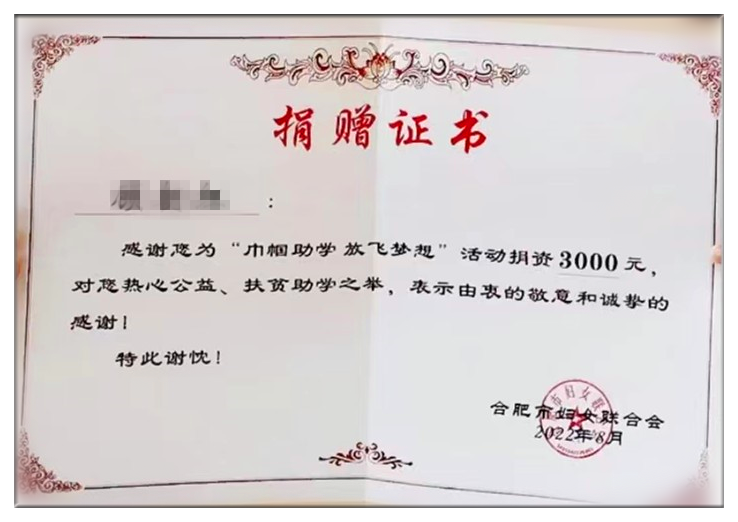 捐赠证书
：
感谢您为“巾帼助学 放飞梦想”活动捐资3000元，
对您热心公益、扶贫助学之举，表示由衷的敬意和诚挚的
感谢！
特此谢忱！
合肥市妇女联合会
2022年8月